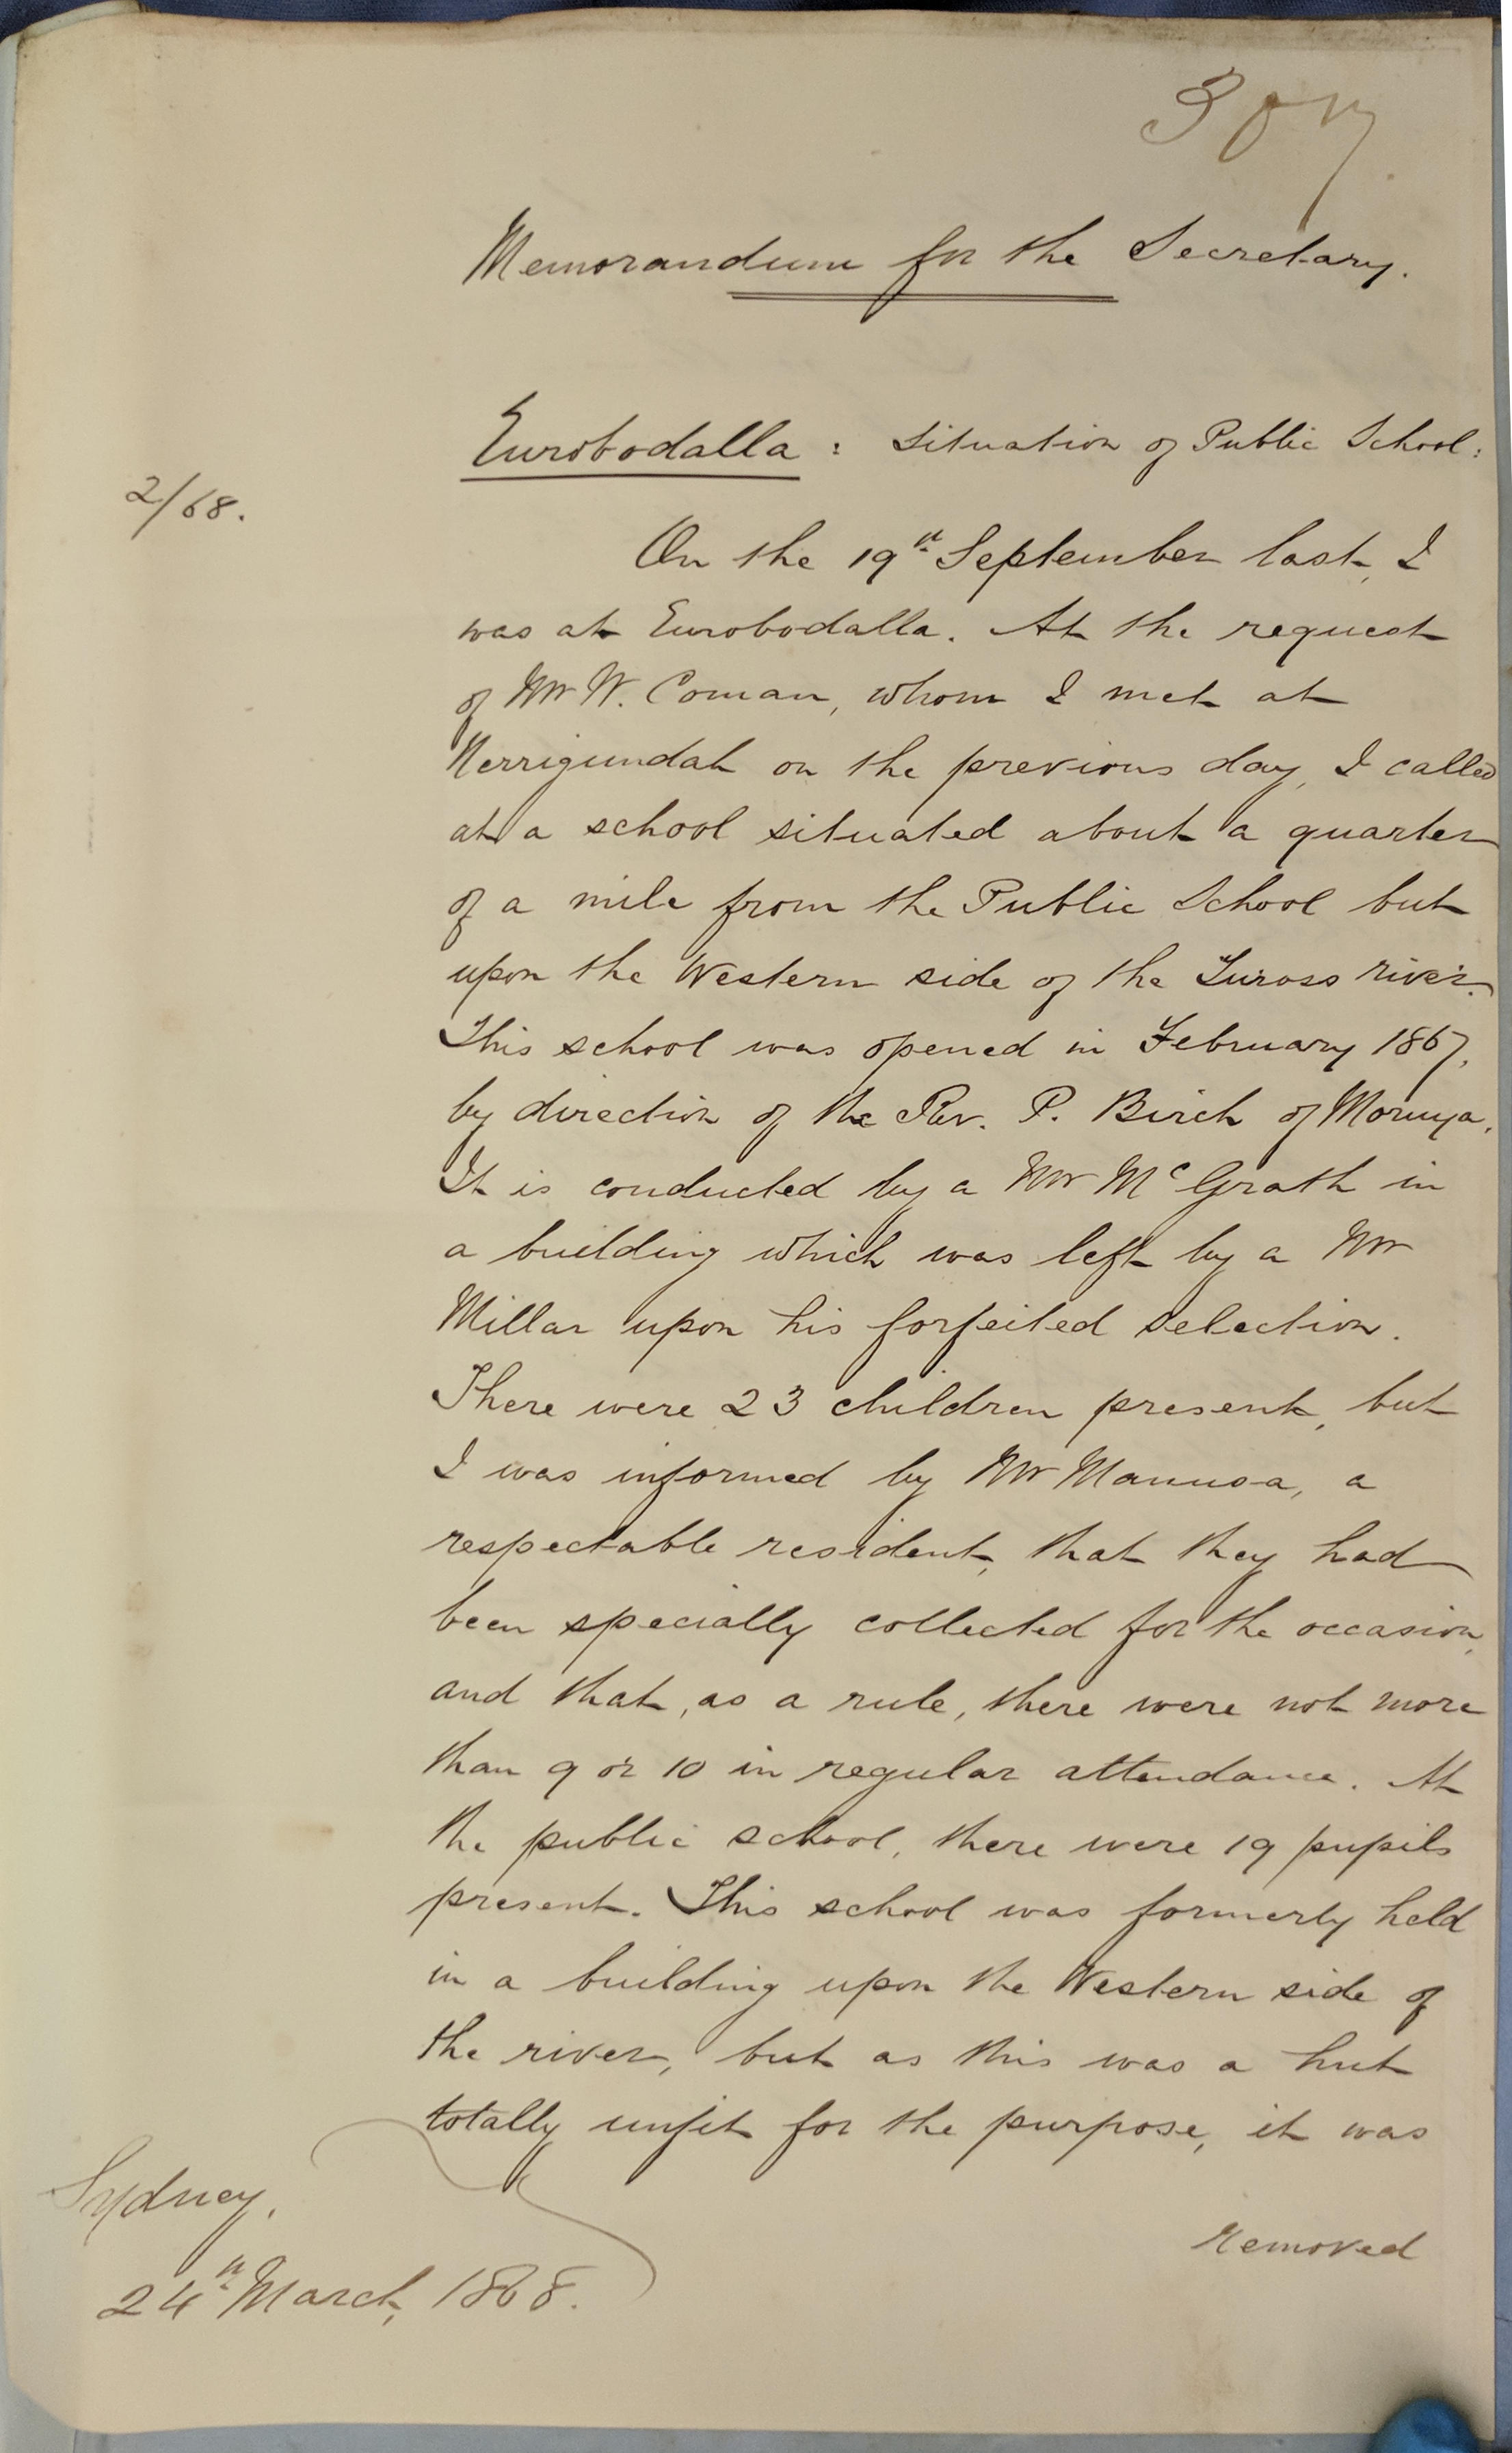 307
Memorandum for the Secretary.
Eurobodalla : Situation of Public School :
2/68.
On the 19th September last, I
was at Eurobodalla. At the request
of Mr W. Coman, whom I met at
Nerrigundah on the previous day, I called
at a school situated about a quarter
of a mile from the Public School but
upon the Western side of the Tuross river.
This school was opened in February 1867,
by direction of the Rev. P. Birch of Moruya.
It is conducted by a Mr McGrath in
a building which was left by a Mr
Millar upon his forfeited selection.
There were 23 children present, but
I was informed by Mr a
respectable resident, that they had
been specially collected for the occasion,
and that, as a rule, there were not more
than 9 or 10 in regular attendance. At
the public school, there were 19 pupils
present. This school was formerly held
in a building upon the Western side of
the river, but as this was a hut
totally unfit for the purpose, it was
removed
Sydney,
24th March, 1868.